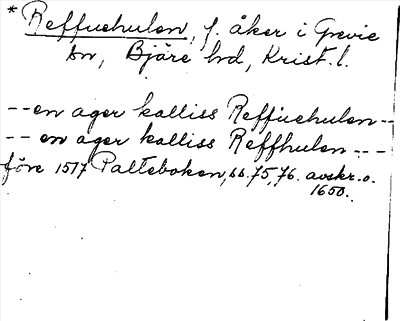 *Reffuehulen, f. åker i Grevie
sn, Bjäre hd, Krist. l.
--en ager kalliss Reffuehulen--
--en ager kalliss Reffhulen---
före 1517 Palteboken, ss. 75, 76. avskr. o.
1650.